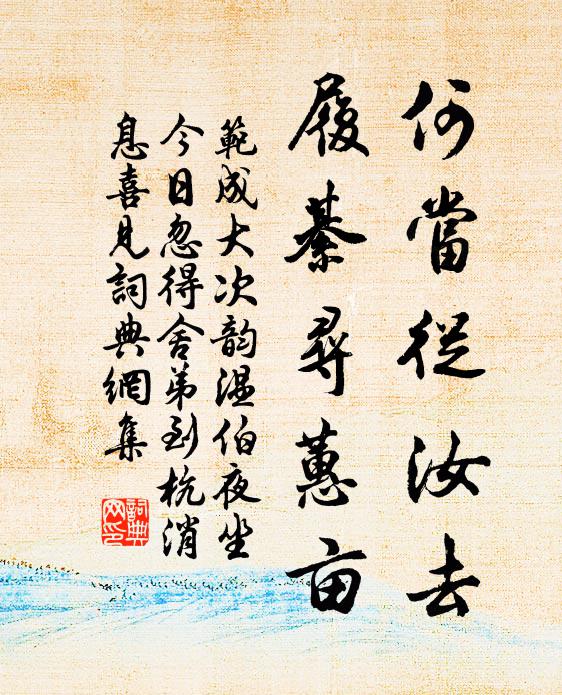 何當從汝去
履綦尋蕙亩
範成大次韵温伯夜坐
今日忽得舍弟到杭消
息喜見詞典網集
詞典网印